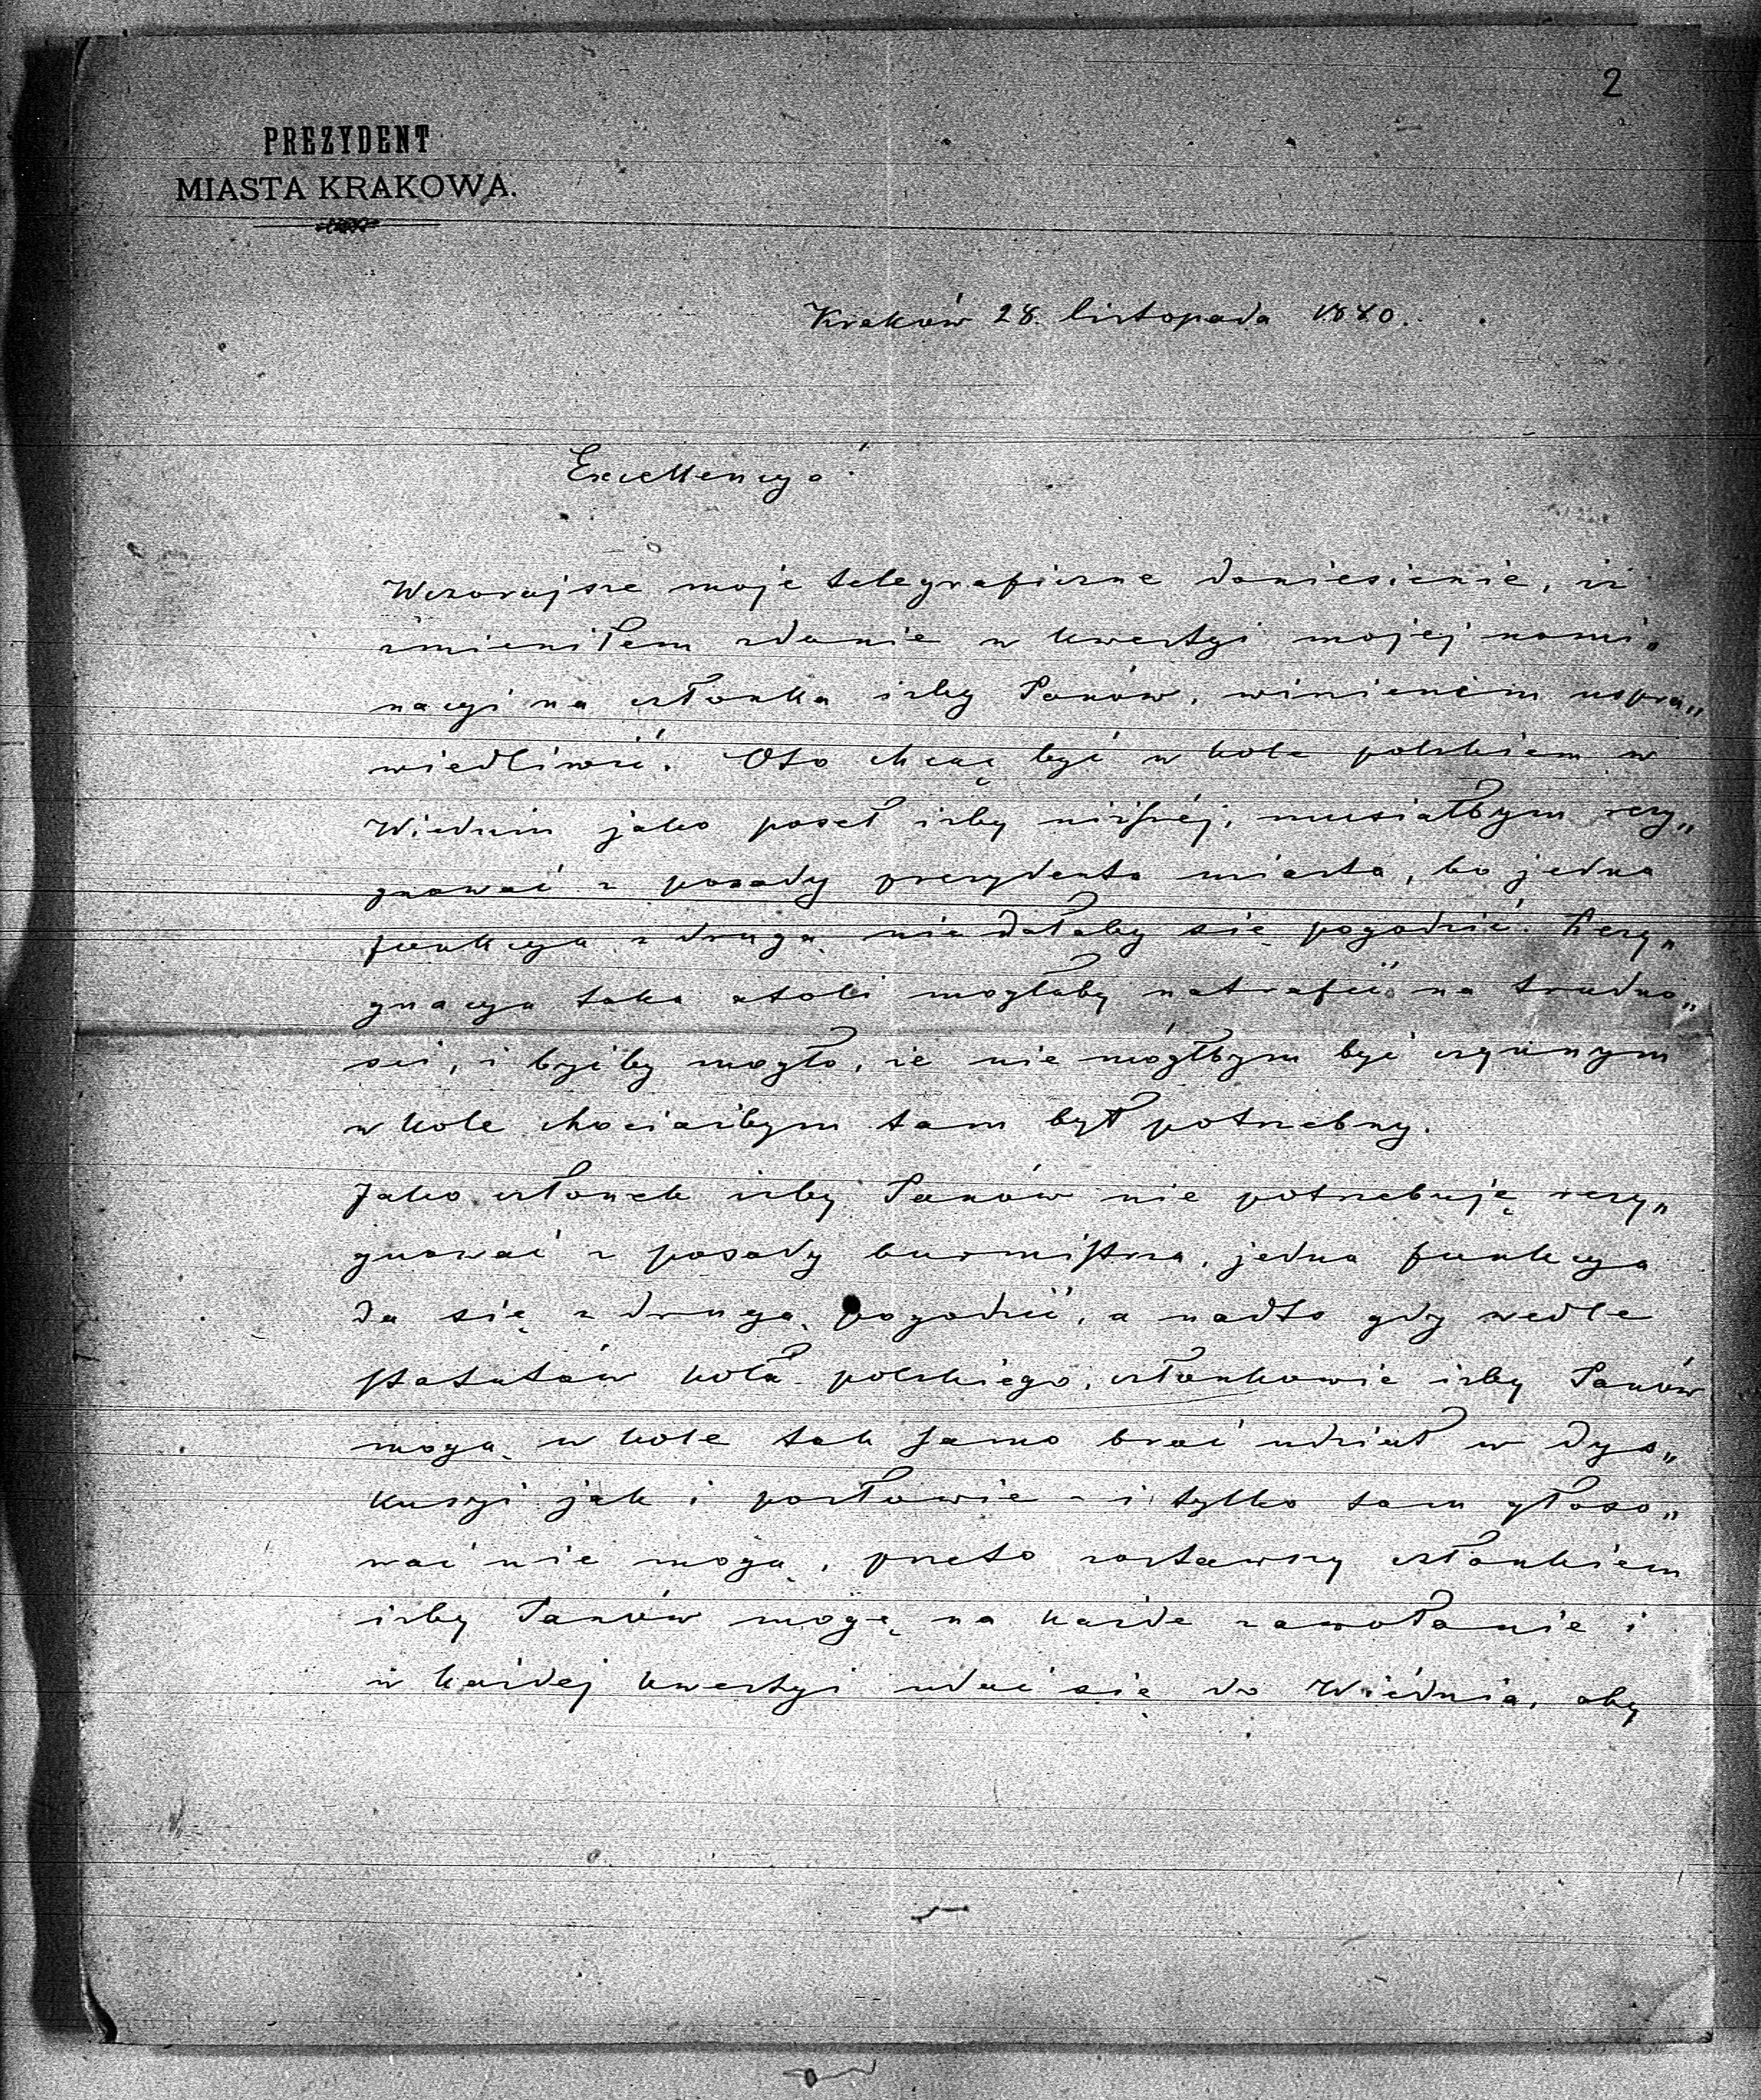 2
PREZYDENT
MIASTA KRAKOWA.
Kraków 28. listopada 1880.
Excellencyo!
Wczorajsze moje telegraficzne doniesienie, iż
zmieniłem zdanie w kwestyi mojej nomi„
nacyi na członka izby Panów, winienem uspra„
wiedliwić. Oto chcąc być w kole polskiem w
Wiedniu jako poseł izby niższéj, musiałbym rezy„
gnować z posady prezydenta miasta, bo jedna
funkcya z drugą niedałaby się pogodzić. Rezy„
gnacya taka atoli mogłaby natrafić na trudno„
ści, i byćby mogło, że nie mógłbym być czynnym
w kole chociażbym tam był potrzebny.
Jako członek izby Panów nie potrzebuję rezy„
gnować z posady burmistrza, jedna funkcya
da się z drugą pogodzić, a nadto gdy wedle
statutów koła polskiego, członkowie izby Panów
mogą w kole tak samo brać udział w dys„
kusyi jak i posłowie - i tylko tam głoso„
wać nie mogą, przeto zostawszy członkiem
izby Panów mogę na każde zawołanie i
w każdej kwestyi udać się do Wiédnia, aby